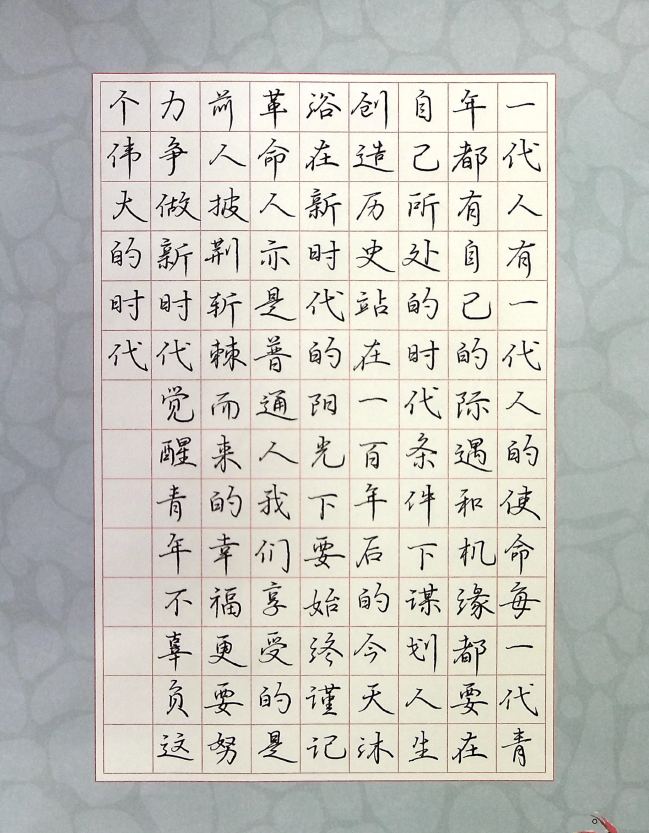 一代人有一代人的使命每一代青
年都有自己的际遇和机缘都要在
自己所处的时代条件下谋划人生
创造历史站在一百年后的今天沐
浴在新时代的阳光下要始终谨记
革命人亦是普通人我们享受的是
前人披荆斩棘而来的幸福更要努
力争做新时代觉醒青年不辜负这
个伟大的时代